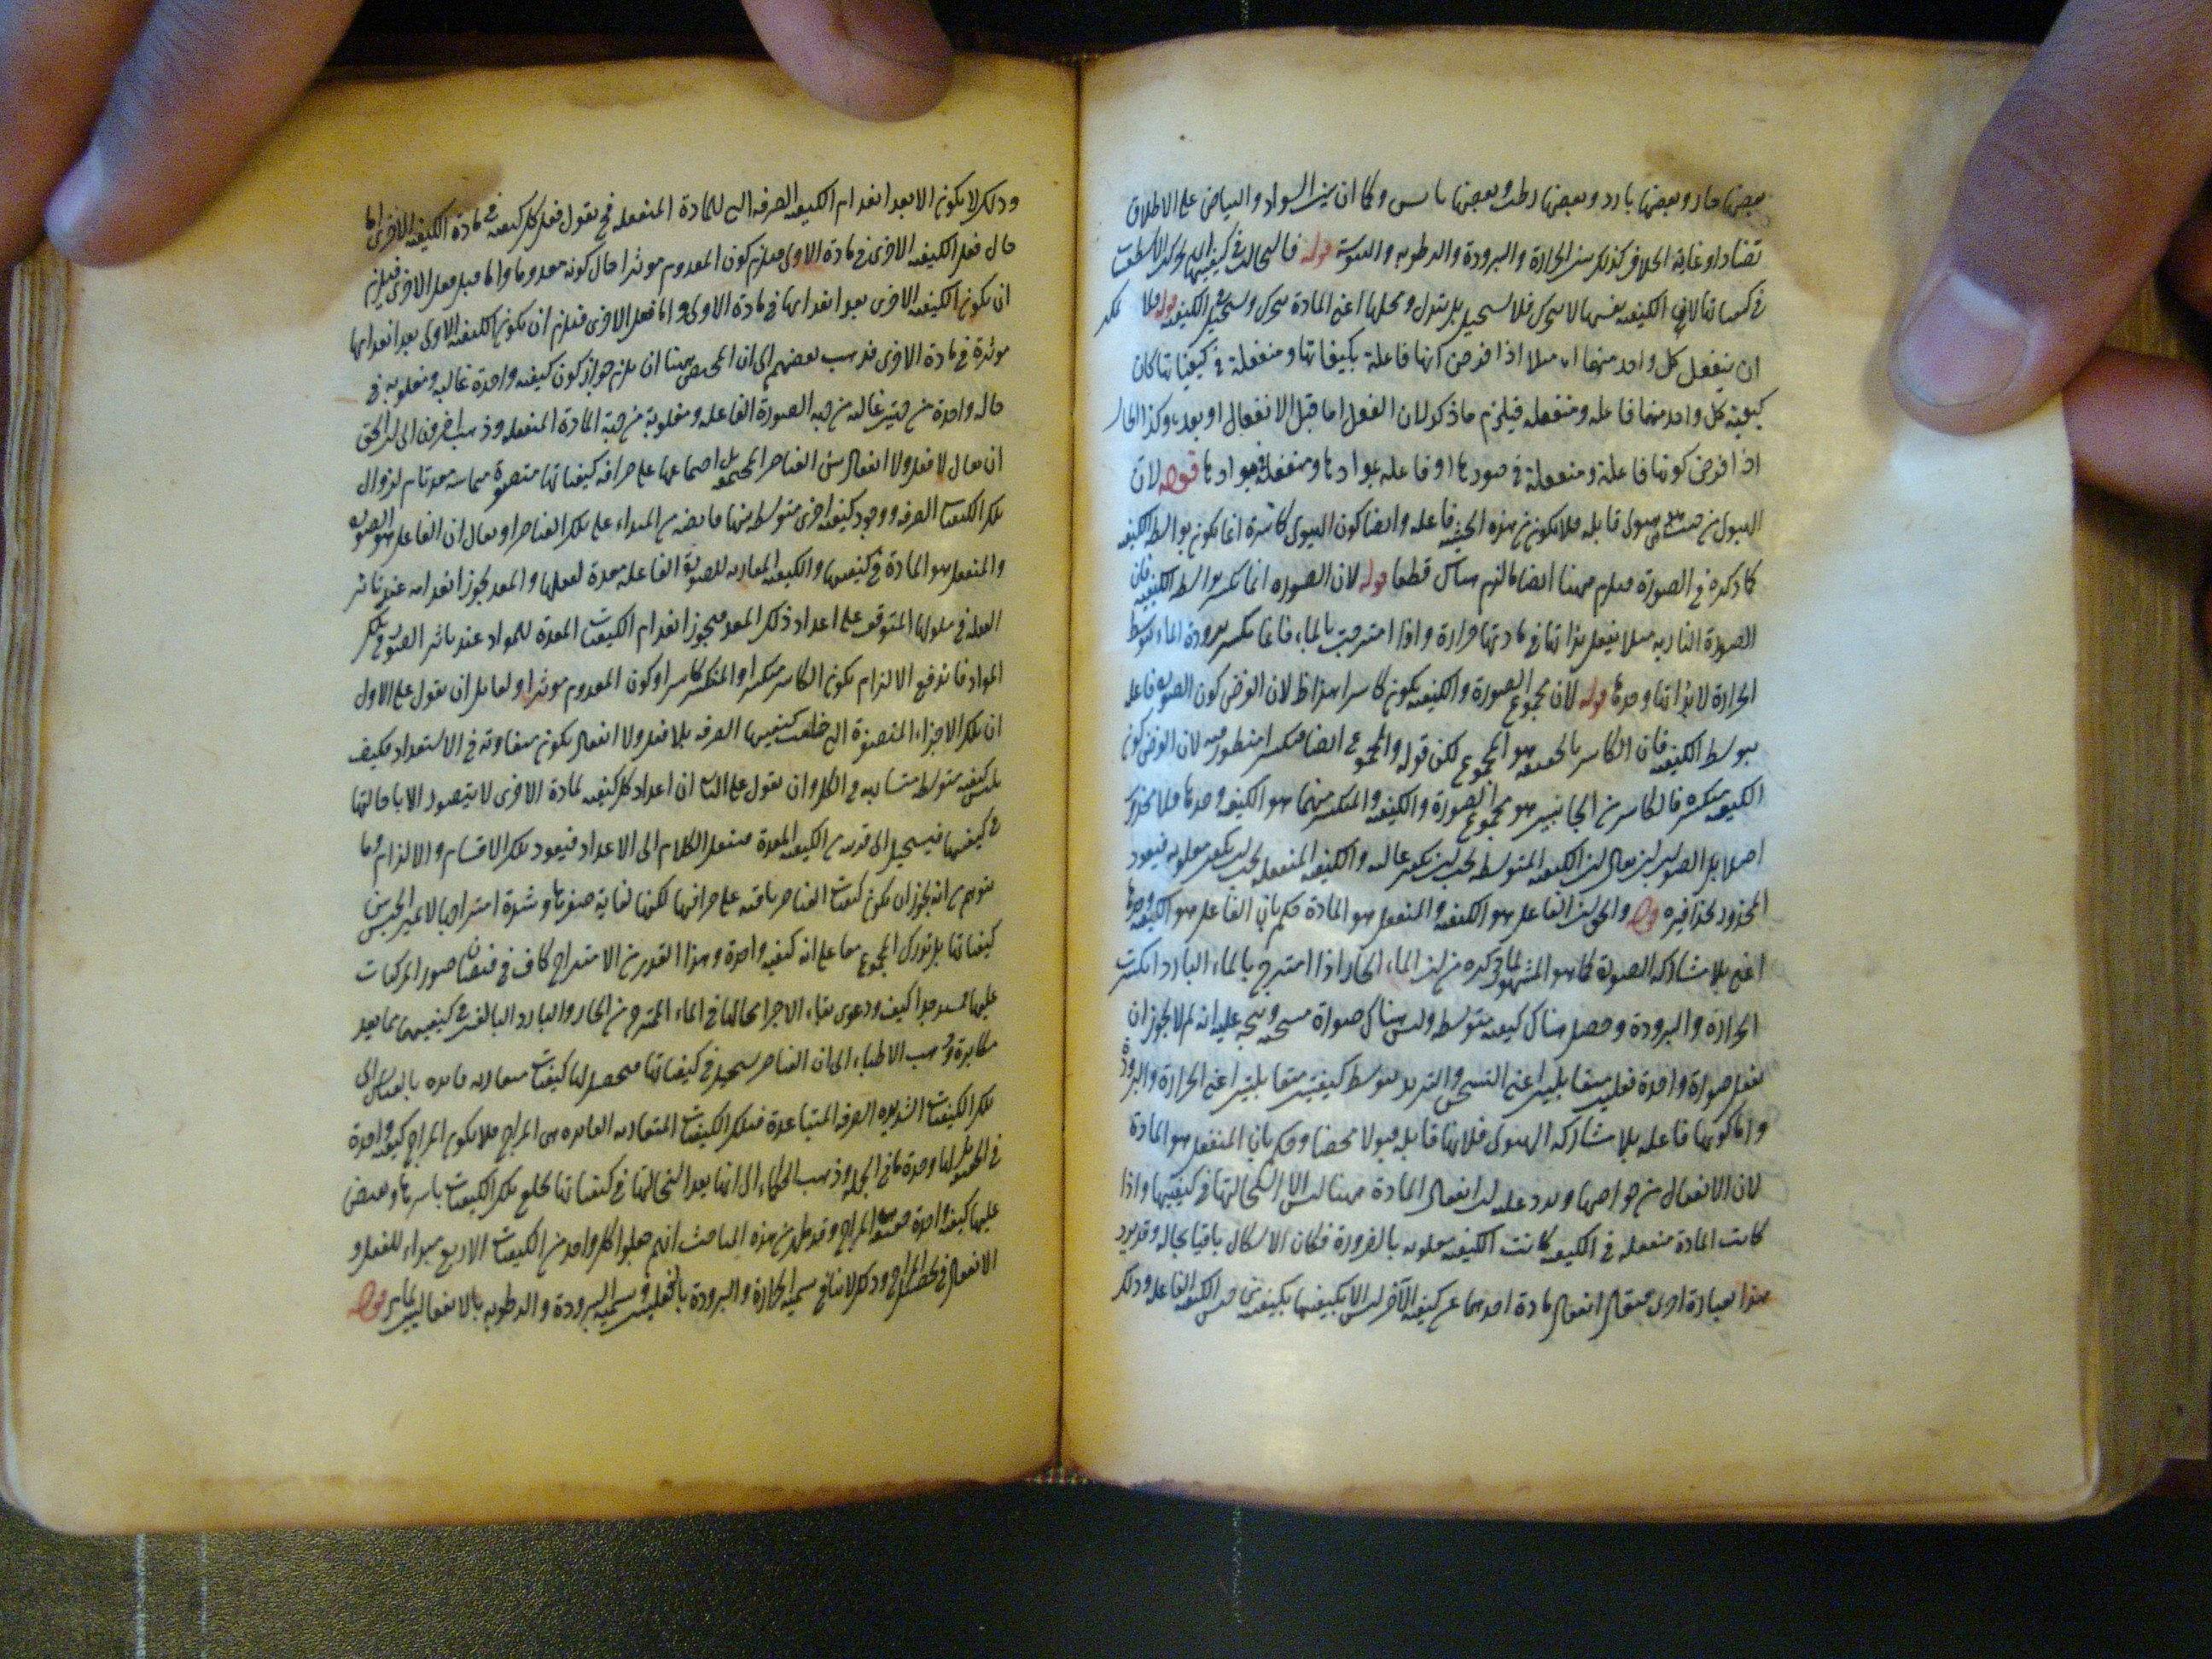 بعضها حار وبعضها بارد وبعضها رطب وبعضها يابس وكما ان بين السواد والبياض على الاطلاق
تضادا وغاية الخلاف كذلك بين الحرارة والبرودة والرطوبة واليبوسة قوله فاستحالت في كيفيتها
في كيفياتها لان الكيفية نفسها لا تتحرك فلا تستحيل بل تتبدل ومحلها اعني المادة تتحرك وتستحيل في الكيفية قوله
ان ينفعل كل واحد منهما اه مثلا اذا فرض انها فاعلة بكيفياتها ومنفعلة في كيفياتها كان
كيفية كل واحد منهما فاعلة ومنفعلة فيلزم ما ذكر لان الفعل اما قبل الانفعال او بعده وكذا الحال
اذا فرض كونها فاعلة ومنفعلة في صورها او فاعلة بموادها ومنفعلة بموادها قوله لان
الهيولى من حيث هي هيولى قابلة فلا يكون من هذه الحيثية فاعلة وايضا كون الهيولى كاسرة انما يكون بواسطة الكيفية
كما ذكره في الصورة فيلزم ههنا ايضا ما لزم هناك قطعا قوله لان الصورة انما تكسر بواسطة الكيفية فان
الصورة النارية مثلا يفعل بذاتها في مادتها حرارة واذا امتزجت بالماء فانما تكسر برودة الماء بتوسط
الحرارة لا بذاتها وحدها قوله لان مجموع الصورة والكيفية يكون كاسرا هذا ظ لان الفرض كون الصورة فاعلة
بتوسط الكيفية فان الكاسر بالحقيقة هو المجموع لكن قوله والمجموع ايضا منكسرا منظور فيه لان الفرض كون
الكيفية منكسرة فالكاسر من الجانبين هو مجموع الصورة والكيفية والمنكسر منهما هو الكيفية وحدها فلا محذور
اصلا بل الصواب ان يقال ان الكيفية المتوسطة يجب ان تكون غالبة والكيفية المنفعلة يجب ان تكون مغلوبة فيعود
المحذور بحذافيره قوله والحق ان الفاعل هو الكيفية والمنفعل هو المادة حكم بان الفاعل هو الكيفية وحدها
اعني بلا مشاركة الصورة كما هو المشهور لما ذكره من ان الماء الحار اذا امتزج بالماء البارد انكسرت
الحرارة والبرودة وحصل هناك كيفية متوسطة وليس هناك صورة مسخنة ويتجه عليه انه لم لا يجوز ان
تفعل صورة واحدة فعلين متقابلين اعني التسخين والتبريد بتوسط كيفيتين متقابلتين اعني الحرارة والبرودة
واما كونها فاعلة بلا مشاركة الهيولى فلانها قابلة قبولا محضا وحكم بان المنفعل هو المادة
لان الانفعال من خواصها ويرد عليه ان انفعال المادة ههنا ليس الا استحالتها في كيفيتها واذا
كانت المادة منفعلة في الكيفية كانت الكيفية مغلوبة بالضرورة فكان الاشكال باقيا بحاله وقد يورد
هذا بعبارة اخرى فيقال انفعال مادة احدهما عن كيفية الآخر ليس الا بكيفيتها بكيفية من جنس الكيفية الفاعلة وذلك
وذلك لا يكون الا بعد انعدام الكيفية الصرفة التي للمادة المنفعلة فح نقول فعل كل كيفية في مادة الكيفية الاخرى اما
حال فعل الكيفية الاخرى في مادة الاولى فيلزم كون المعدوم موثرا حال كونه معدوما واما قبل فعل الاخرى فيلزم
ان يكون الكيفية الاخرى بعد انعدامها في مادة الاولى واما فعل الاخرى فيلزم ان يكون الكيفية الاولى بعد انعدامها
موثرة في مادة الاخرى فذهب بعضهم الى ان المحيص ههنا ان يلتزم جواز كون كيفية واحدة غالبة ومغلوبة في
حالة واحدة من جهتين غالبة من جهة الصورة الفاعلة ومغلوبة من جهة المادة المنفعلة وذهب اخرون الى ان الحق
ان يقال لا فعل ولا انفعال بين العناصر المجتمعة بل اجتماعها على صرافة كيفياتها متصغرة متماسة معد تام لزوال
تلك الكيفيات الصرفة ووجود كيفية اخرى متوسطة بينها فايضة من المبداء على تلك العناصر او يقال ان الفاعل هو الصورة
والمنفعل هو المادة في كيفيتها والكيفية المقارنة للصورة الفاعلة معدة لفعلها والمعد يجوز انعدامه عند تاثير
العلة في معلولها المتوقف على اعداد ذلك المعد فيجوز انعدام الكيفيات المعدة للمواد عند تاثير الصور في تلك
المواد فاندفع الالزام بكون الكاسر منكسرا والمنكسر كاسرا وكون المعدوم موثرا ولقائل ان يقول على الاول
ان تلك الاجزاء المتصغرة التي خلعت كيفيتها الصرفة بلا فعل ولا انفعال يكون متفاوتة في الاستعداد فكيف
يلبس كيفية متوسطة متشابهة في الكل وان يقول على الثاني ان اعداد كل كيفية لمادة الاخرى لا يتصور الا باحالتها
في كيفيتها فيستحيل الى قريب من الكيفية المعدة فننقل الكلام الى الاعداد فيعود تلك الاقسام والالزام وما
يتوهم من انه يجوز ان يكون كيفيات العناصر باقية على صرافتها لكنها لغاية صغرها وشدة امتزاجها لا يميز الحس بين
كيفياتها بل يدرك المجموع معا على انه كيفية واحدة وهذا القدر من الامتزاج كاف في فيضان صور المركبات
عليها فمستبعد جدا كيف ودعوى بقاء الاجزاء بحالها في الماء الممتزج من الحار والبارد البالغين في كيفيتهما مما يعد
مكابرة وذهب الاطباء الى ان العناصر تستحيل في كيفياتها فيحصل لها كيفيات متقاربة فايزة بالقياس الى
تلك الكيفيات الشديدة الصرفة المتباعدة فتلك الكيفيات المتقاربة الفايزة هي المزاج فلا يكون المزاج كيفية واحدة
في الحقيقة بل لها وحدة ما في الجملة وذهب الحكماء الى انها بعد استحالتها في كيفياتها تخلع تلك الكيفيات باسرها وتفيض
عليها كيفية واحدة حقيقية هي المزاج وقد ظهر من هذه المباحث انهم جعلوا كل واحد من الكيفيات الاربع مبداء للفعل و
الانفعال في تحصيل المزاج وذلك لا ينافي تسمية الحرارة والبرودة بالفعليتين وتسمية اليبوسة والرطوبة بالانفعاليتين قوله